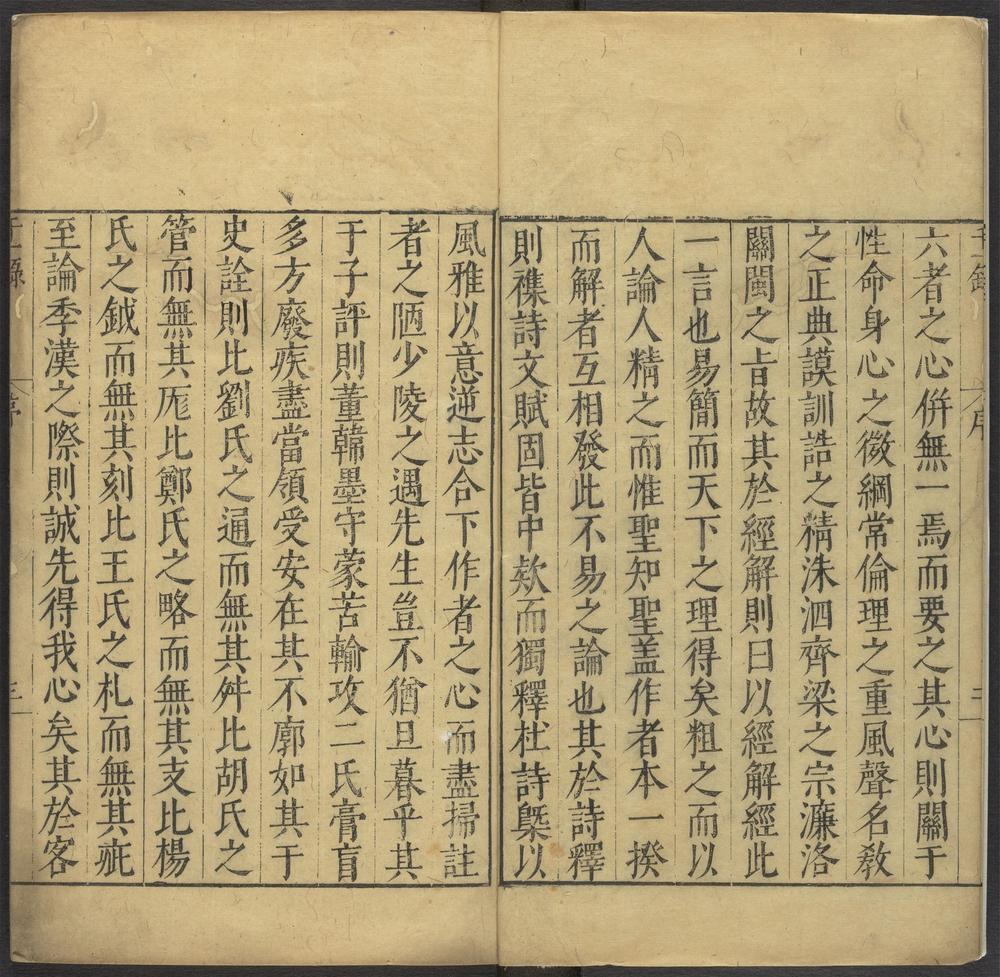 六者之心併無一焉而要之其心則關于
性命身心之微綱常倫理之重風聲名教
之正典謨訓誥之精洙泗齊梁之宗濂洛
關閩之旨故其於經解則曰以經解經此
一言也易簡而天下之理得矣粗之而以
人論人精之而惟聖知聖盖作者本一揆
而解者互相發此不易之論也其於詩釋
則襍詩文賦固皆中欵而獨釋杜詩槩以
風雅以意逆志合下作者之心而盡掃註
者之陋少陵之遇先生豈不猶旦暮乎其
于子評則董韓墨守蒙苦輸攻二氏膏肓
多方廢疾盡當領受安在其不廓如其于
史詮則比劉氏之通而無其舛比胡氏之
管而無其厖比鄭氏之略而無其支比楊
氏之鉞而無其刻比王氏之札而無其疵
至論季漢之際則誠先得我心矣其於客
序
三